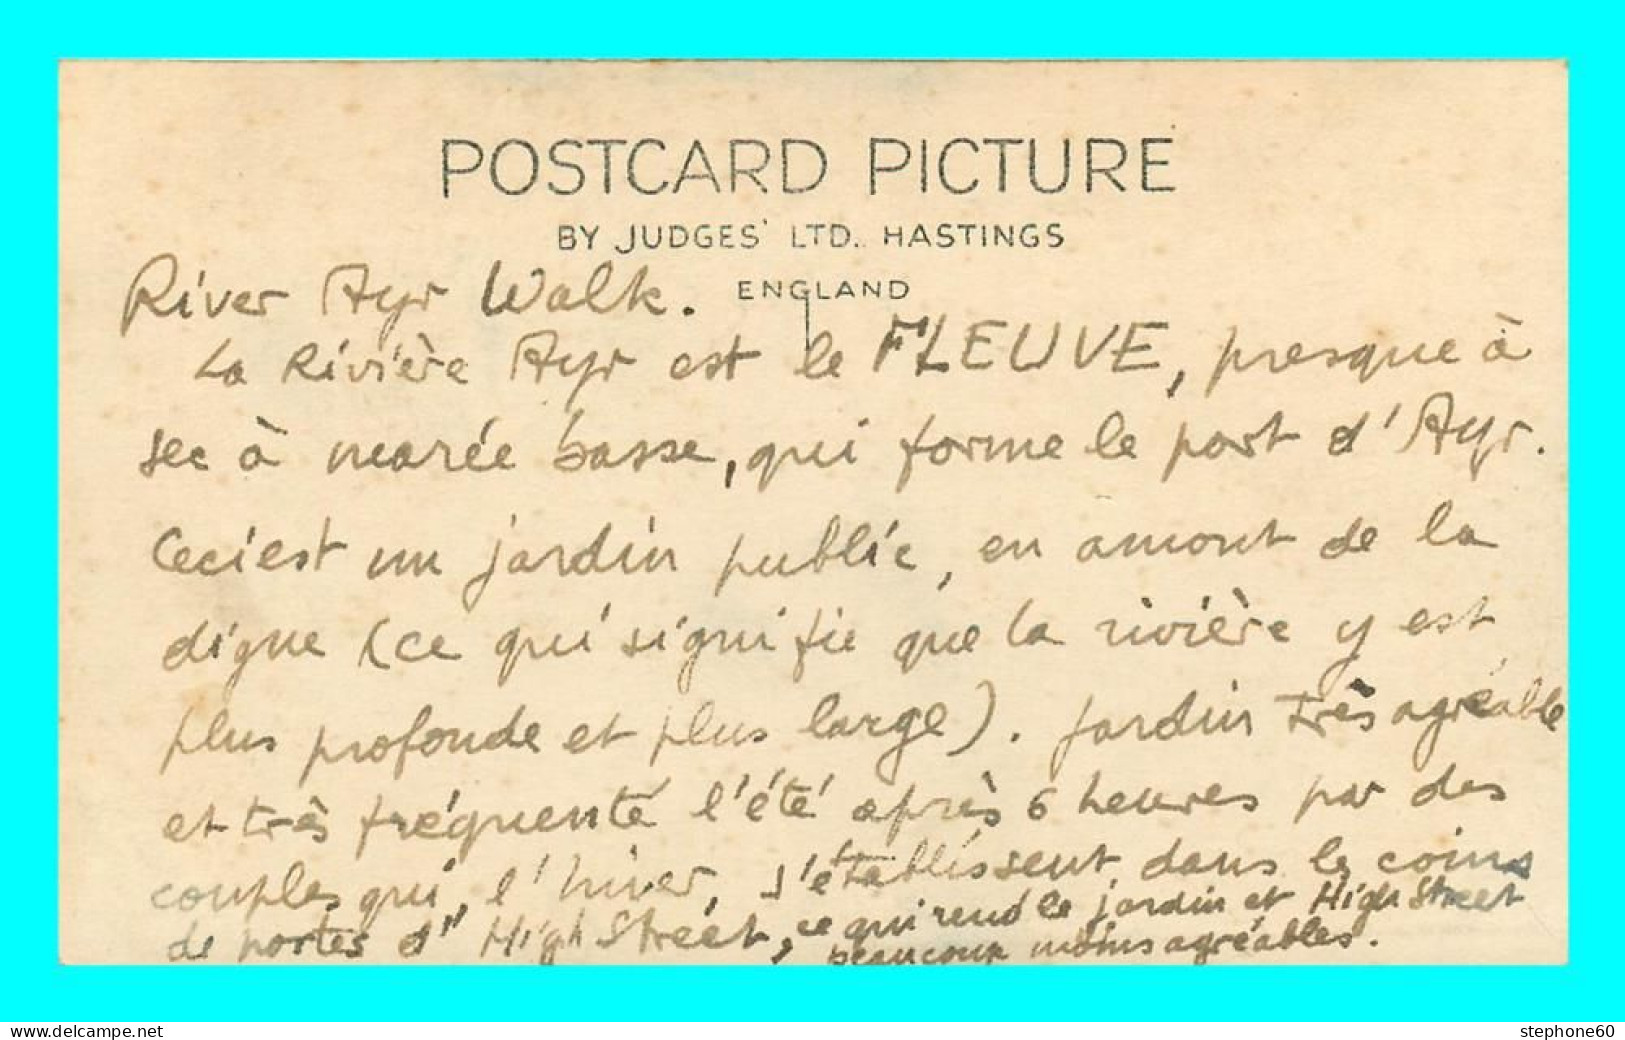 POSTCARD PICTURE
BY JUDGES' LTD. HASTINGS
ENGLAND
River Ayr Walk.
La Rivière Ayr est le FLEUVE, presque à
sec à marée basse, qui forme le port d'Ayr.
Ceci est un jardin public, en amont de la
digue (ce qui signifie que la rivière y est
plus profonde et plus large). Jardin très agréable
et très fréquenté l'été après 6 heures par des
couples qui, l'hiver, s'établissent dans les coins
de portes d'High Street, ce qui rend le jardin et High Street
beaucoup moins agréables.
www.delcampe.net
stephone60